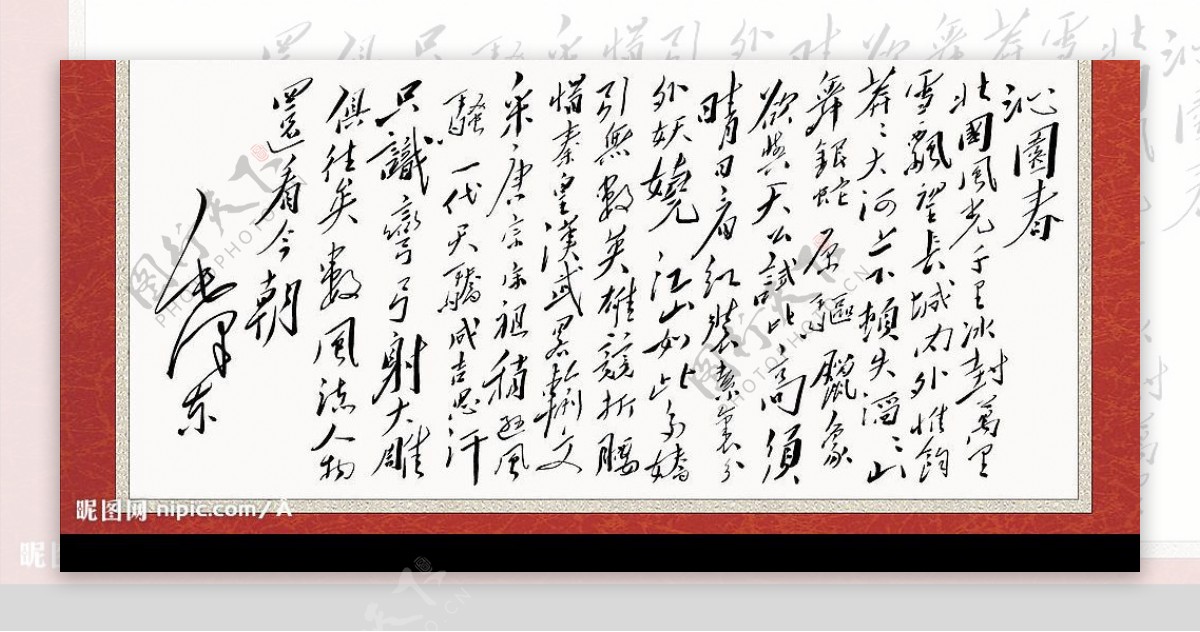 沁園春
北國風光千里冰封萬里
雪飄望長城内外惟餘
莽〻大河上下頓失滔〻山
舞銀蛇原驅臘象
欲與天公試比高須
晴日看紅裝素裹分
外妖嬈江山如此多嬌
引無數英雄競折腰
惜秦皇漢武略輸文
采唐宗宋祖稍遜風
騷一代天驕成吉思汗
只識彎弓射大雕
俱往矣數風流人物
還看今朝
毛澤东
昵图网 nipic.com/A
图行天下 PHOTOPHOTO.CN